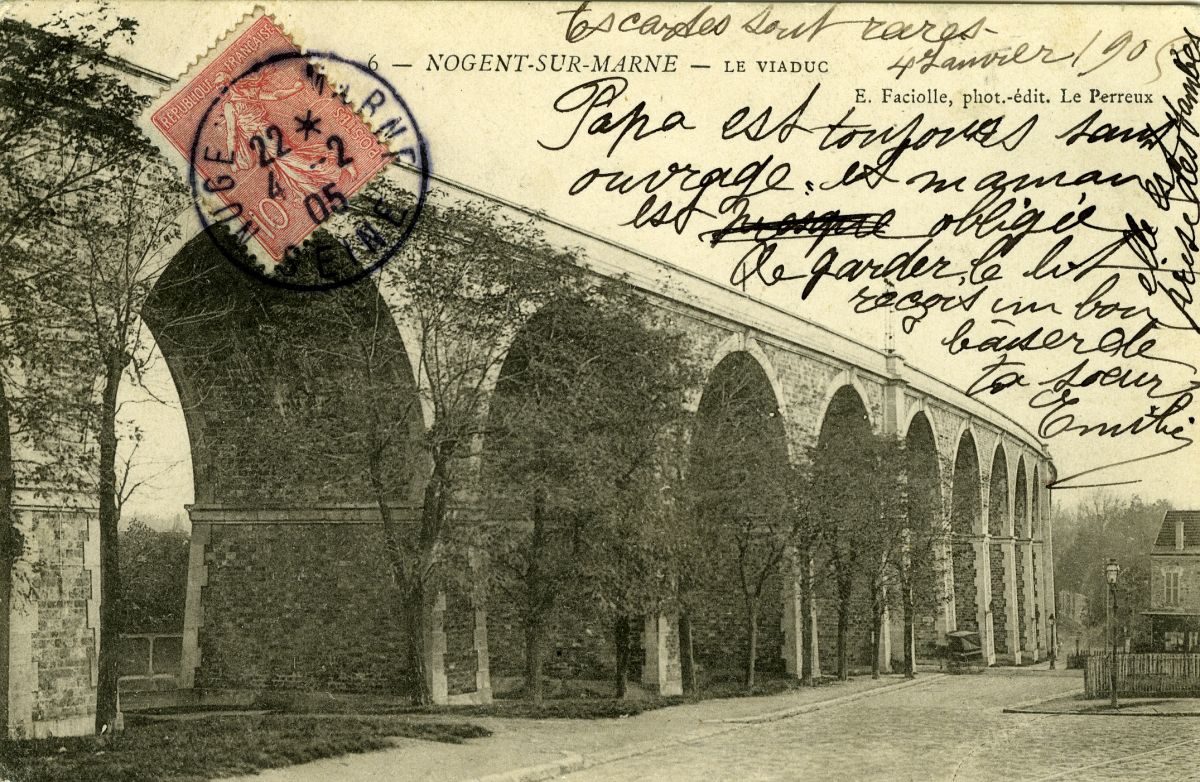 Tes cartes sont rares
4 Janvier 1905
6 — NOGENT-SUR-MARNE — LE VIADUC
E. Faciolle, phot.-édit. Le Perreux
REPUBLIQUE FRANÇAISE
POSTES
10
NOGENT S MARNE
22 *
4 -2
05
SEINE
Papa est toujours sans
ouvrage, et maman
est presque obligée
de garder le lit
elle est
prise des jambes
reçois un bon
baiser de
ta soeur
Emilie